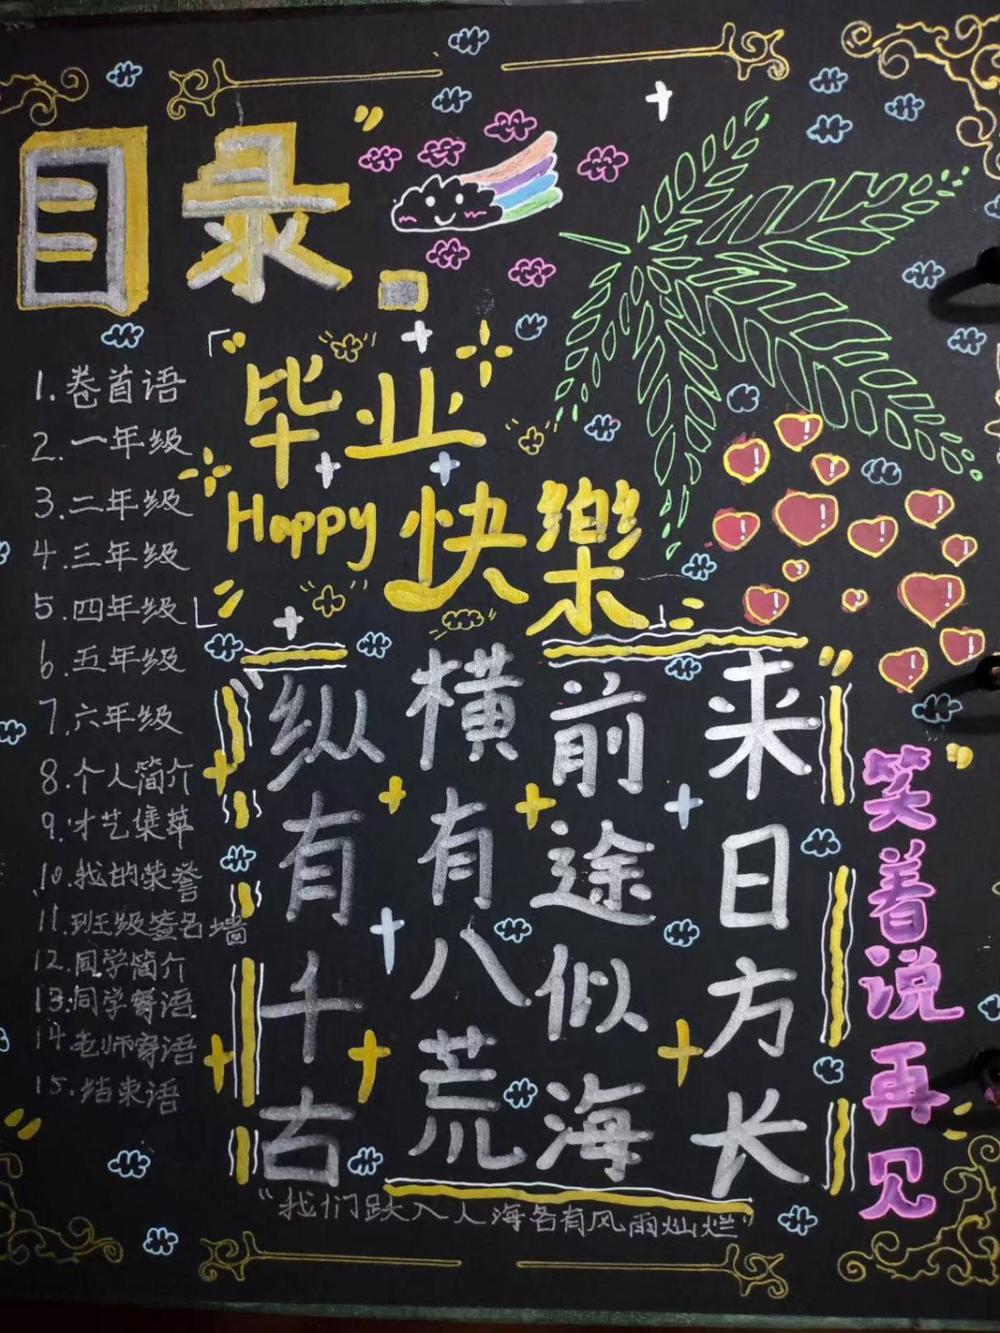 目录
1.卷首语
2.一年级
3.二年级
4.三年级
5.四年级
6.五年级
7.六年级
8.个人简介
9.才艺集萃
10.我的荣誉
11.班级签名墙
12.同学简介
13.同学寄语
14.老师寄语
15.结束语
「毕业
Happy快樂」
纵有千古
横有八荒
前途似海
来日方长
笑着说再见
“我们跌入人海各有风雨灿烂”